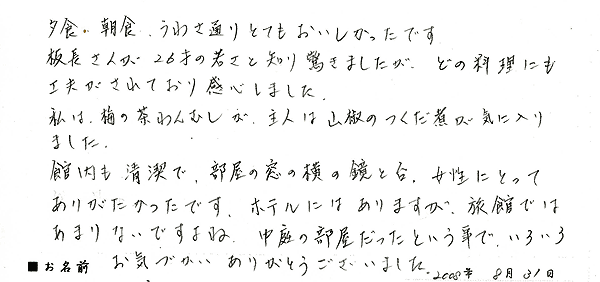 夕食、朝食、うわさ通りとてもおいしかったです
板長さんが26才の若さと知り驚きましたが、どの料理にも
工夫がされており感心しました。
私は、梅の茶わんむしが、主人は山椒のつくだ煮が気に入り
ました。
館内も清潔で、部屋の窓の横の鏡と台、女性にとって
ありがたかったです、ホテルにはありますが、旅館では
あまりないですよね、中庭の部屋だったという事で、いろいろ
■お名前 お気づかいありがとうございました。2008年 8月31日